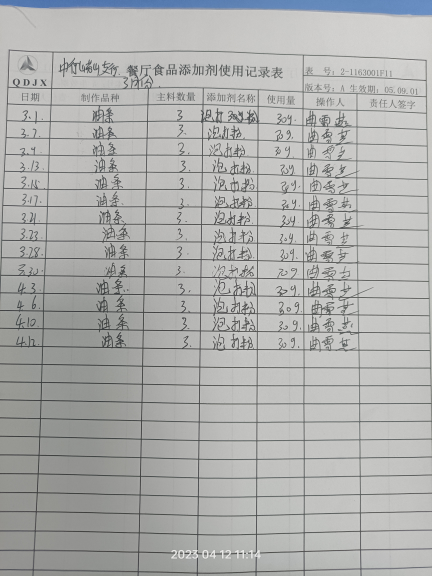 QDJX
中行 支行 餐厅食品添加剂使用记录表
3月份
表 号: 2-1163001F11
版本号: A 生效期: 05.09.01
日期 制作品种 主料数量 添加剂名称 使用量 操作人 责任人签字
3.1. 油条 3 泡打粉 30g. 曲雪
3.7. 油条 3. 泡打粉 30g. 曲雪
3.9. 油条 3. 泡打粉 30g 曲雪
3.13. 油条 3. 泡打粉 30g 曲雪
3.15. 油条 3. 泡打粉 30g. 曲雪
3.17. 油条 3. 泡打粉 30g. 曲雪
3.21. 油条 3. 泡打粉 30g 曲雪
3.23 油条 3. 泡打粉 30g. 曲雪
3.28. 油条 3. 泡打粉 30g. 曲雪
3.30. 油条 3. 泡打粉 30g 曲雪
4.3 油条. 3. 泡打粉 30g 曲雪
4.6. 油条 3. 泡打粉 30g. 曲雪
4.10. 油条 3. 泡打粉 30g. 曲雪
4.12. 油条 3. 泡打粉 30g. 曲雪
2023 04 12 11:14